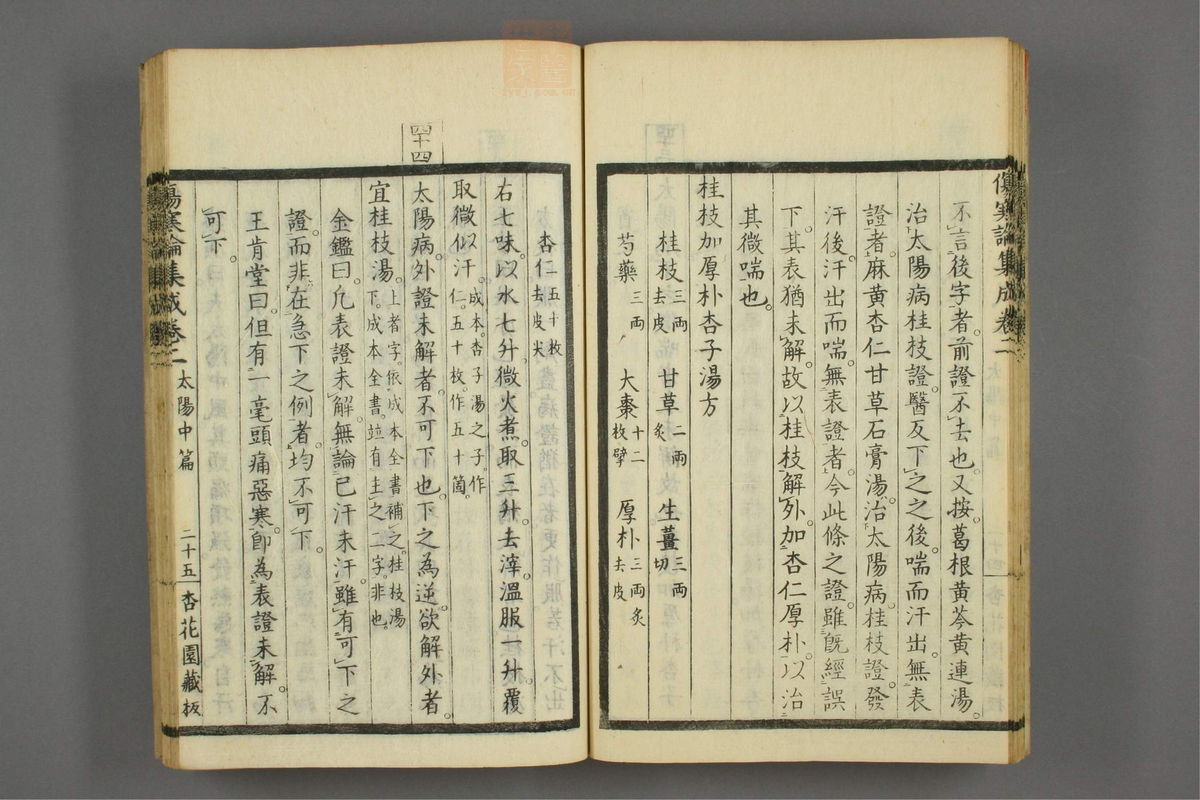 傷寒論集成卷二
不言後字者。前證不去也。又按。葛根黃芩黃連湯。
治太陽病桂枝證。醫反下之之後。喘而汗出。無表
證者。麻黃杏仁甘草石膏湯。治太陽病。桂枝證。發
汗後。汗出而喘。無表證者。今此條之證。雖既經誤
下。其表猶未解。故以桂枝解外。加杏仁厚朴。以治
其微喘也。
桂枝加厚朴杏子湯方
桂枝三兩去皮 甘草二兩炙 生薑三兩切
芍藥三兩 大棗十二枚擘 厚朴三兩炙去皮
杏仁五十枚去皮尖
右七味。以水七升。微火煮。取三升。去滓。溫服一升。覆
取微似汗。成本。杏子湯之子。作仁。五十枚。作五十箇。
四十四
太陽病。外證未解者。不可下也。下之為逆。欲解外者。
宜桂枝湯。上者字。依成本全書補之。桂枝湯下。成本全書。竝有主之二字。非也。
金鑑曰。凡表證未解。無論已汗未汗。雖有可下之
證。而非在急下之例者。均不可下。
王肯堂曰。但有一毫頭痛惡寒。即為表證未解。不
可下。
傷寒論集成卷二 太陽中篇 二十五 杏花園藏板